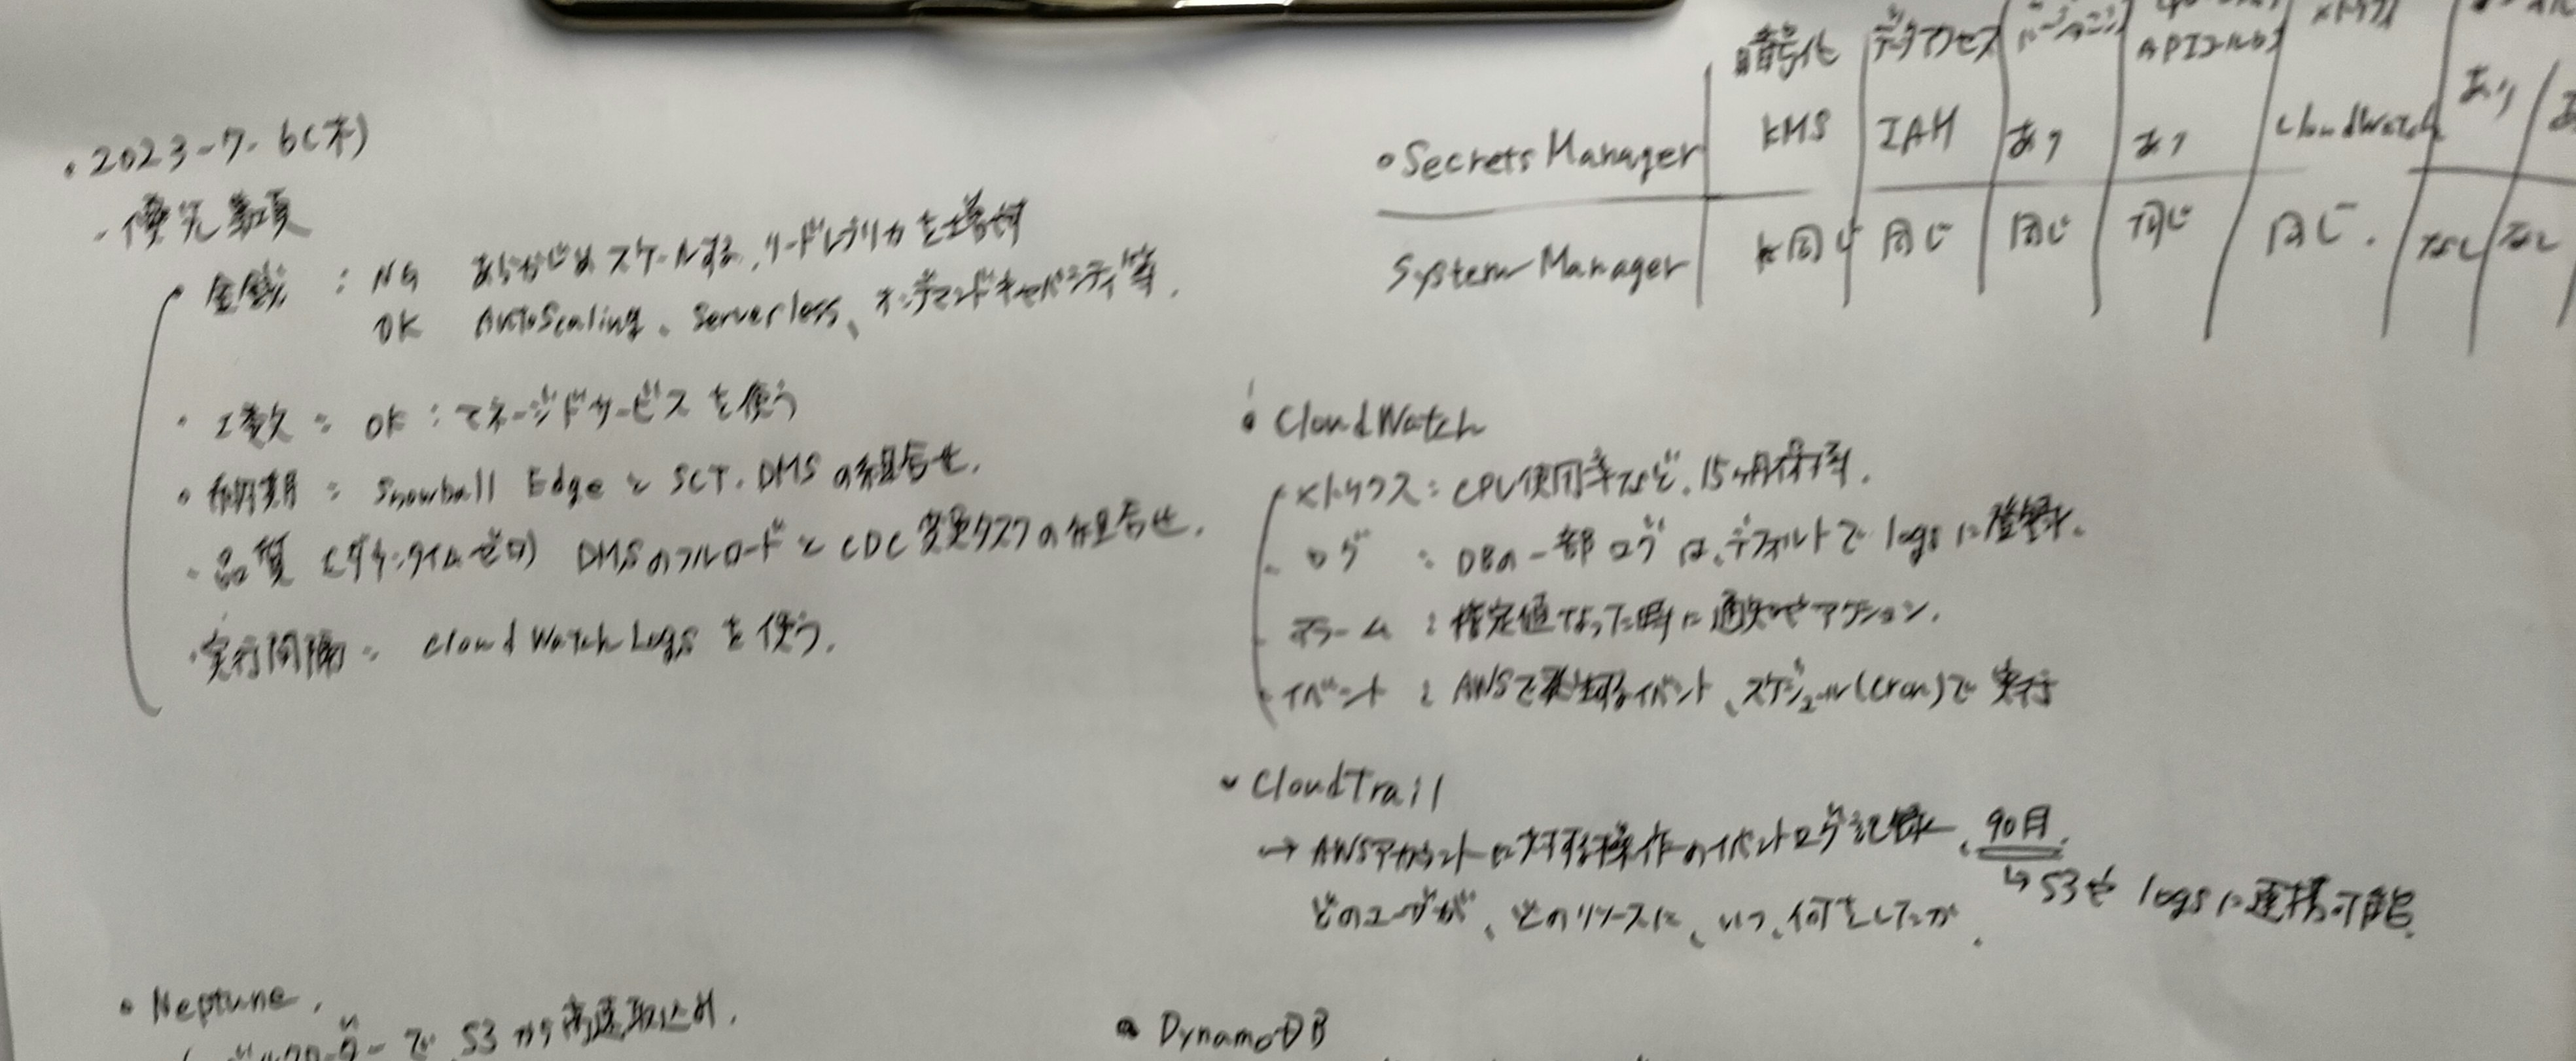 ・2023-7.6(木)
- 優先事項
金額 : NG あらかじめスケールする、リードレプリカを増何
OK AutoScaling、Serverless、オンデマンドキャパシティ等.
・工数 : OK : マネージドサービスを使う
・納期 : Snowball EdgeとSCT.DMSの組合せ.
・品質 (ダウンタイムゼロ) DMSのフルロードとCDC変更タスクの組合せ.
・実行間隔 : CloudWatchLogsを使う.
・Neptune.
で S3から高速取込み.
暗号化 データアクセス APIコール メトリクス
・Secrets Manager KMS IAM あり あり CloudWatch あり
System Manager 同じ 同じ 同じ 同じ 同じ. なし なし
・CloudWatch
メトリクス : CPU使用率など、15ヶ月保存.
ログ : DBの一部ログは、デフォルトで logsに登録.
アラーム : 指定値なった時に通知やアクション.
イベント : AWSで発生するイベント、スケジュール(cron)で実行
・CloudTrail
→ AWSアカウントに対する操作のイベントログ記録、90日.
↳ S3やlogsに連携可能.
どのユーザが、どのリソースに、いつ、何をしたか.
・DynamoDB